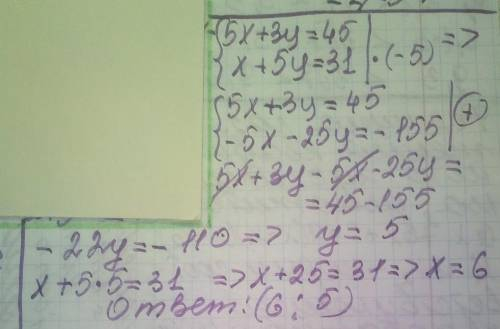 {5x+3y=45
{x+5y=31 | ·(-5) =>
{5x+3y=45
{-5x-25y=-155 | +
5x+3y-5x-25y=
=45-155
-22y=-110 => y=5
x+5·5=31 => x+25=31 => x=6
Ответ: (6; 5)